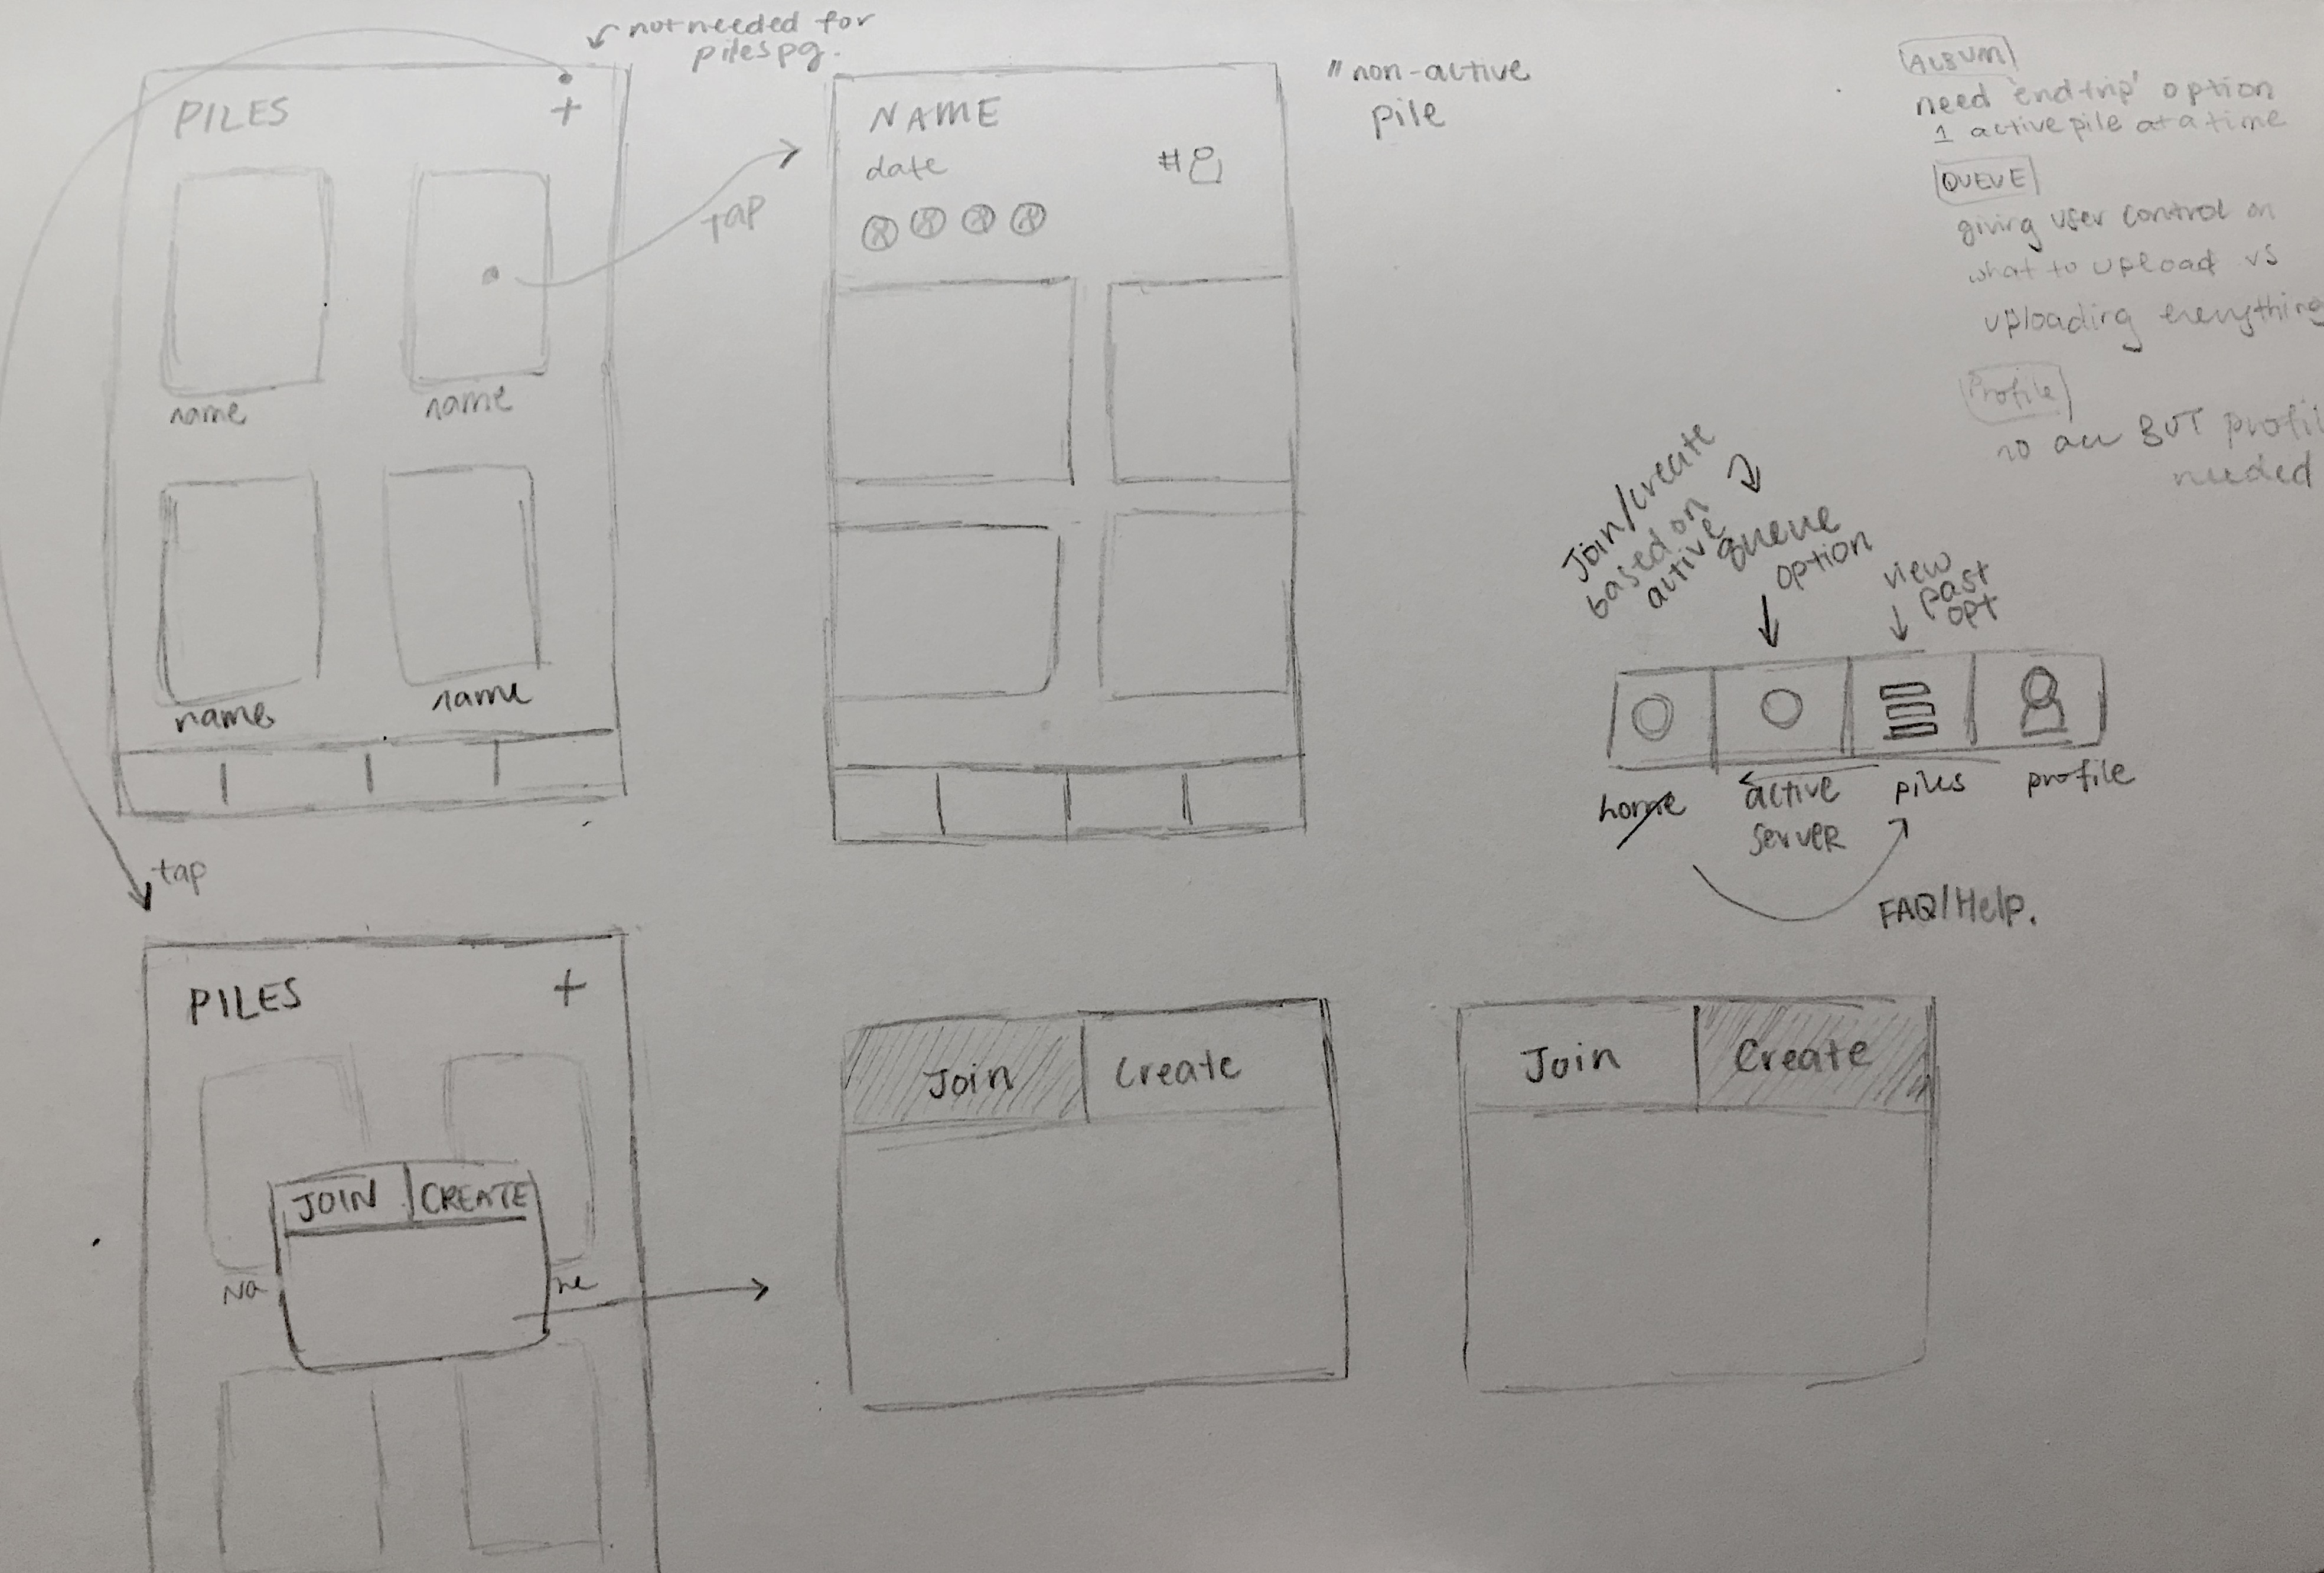 not needed for
piles pg.
PILES +
name name
name name
tap
NAME
date #
tap
"non-active
pile
ALBUM
need 'end trip' option
1 active pile at a time
QUEUE
giving user control on
what to upload vs
uploading everything
Profile
no acc BUT profi
needed
Join/create
based on
active
queue
option
view
past
opt
home active
server piles profile
FAQ/Help.
tap
PILES +
JOIN CREATE
Na me
Join Create
Join Create